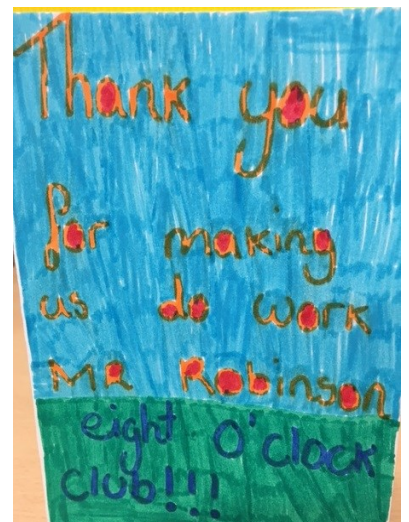 Thank you
for making
us do work
MR Robinson
eight O'clock
club!!!